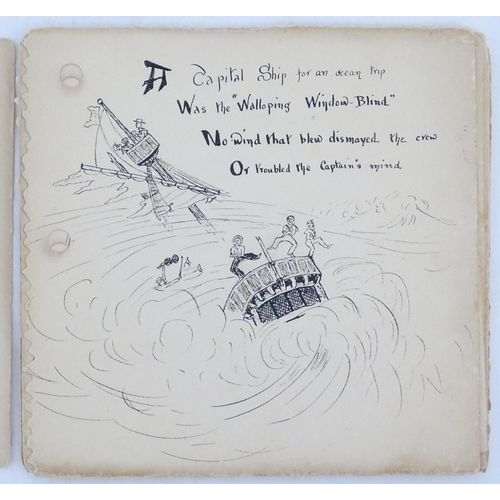 A Capital Ship for an ocean trip
Was the "Walloping Window-Blind"
No wind that blew dismayed the crew
Or troubled the Captain's mind